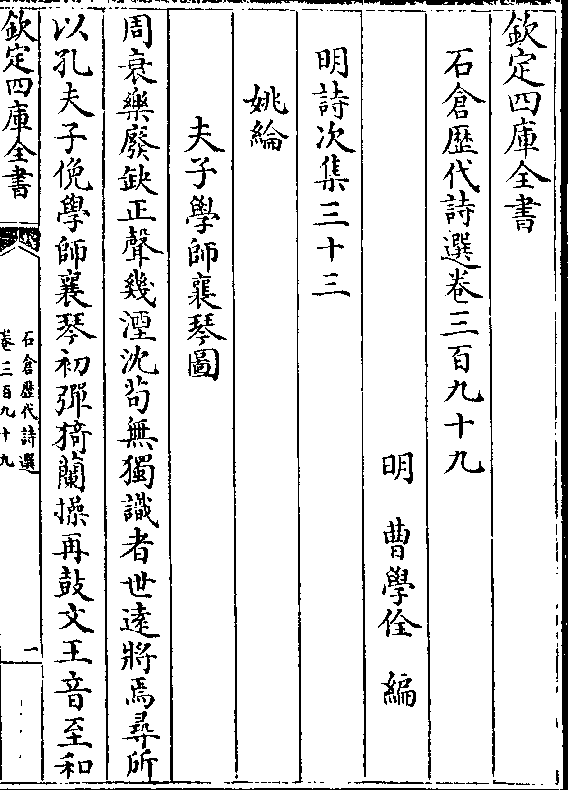 欽定四庫全書
石倉歴代詩選卷三百九十九
明　曹學佺　編
明詩次集三十三
姚綸
夫子學師襄琴圖
周衰樂廢缺正聲幾湮沈茍無獨識者世逺將焉尋所
以孔夫子俛學師襄琴初彈猗蘭操再鼓文王音至和
欽定四庫全書
石倉歴代詩選
卷三百九十九
一